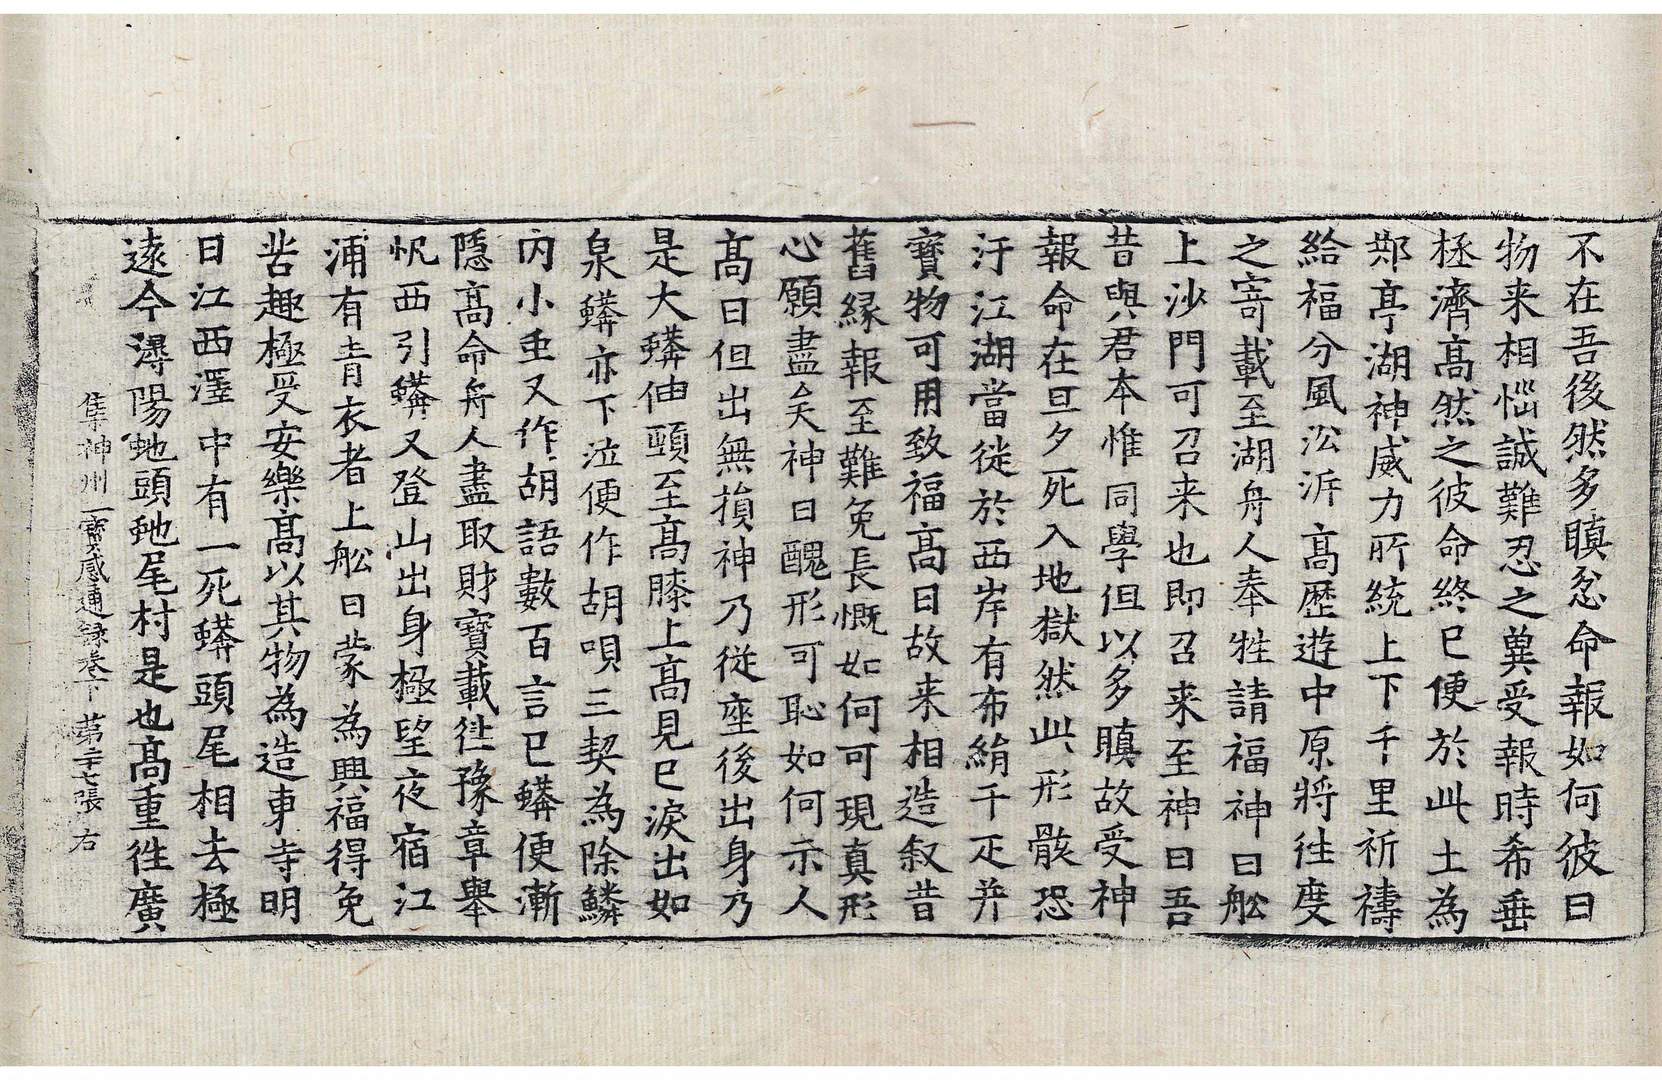 不在吾後然多瞋忿命報如何彼曰
物来相惱誠難忍之兾受報時希垂
拯濟髙然之彼命終已便於此土為
䢼亭湖神威力所統上下千里祈禱
給福分風㳂泝髙歴遊中原將徃度
之寄載至湖舟人奉牲請福神曰舩
上沙門可召来也即召来至神曰吾
昔與君本惟同學但以多瞋故受神
報命在旦夕死入地獄然此形骸恐
汙江湖當徙於西岸有布絹千疋并
寳物可用致福髙曰故来相造叙昔
舊縁報至難免長慨如何可現真形
心願盡矣神曰醜形可恥如何示人
髙曰但出無損神乃從座後出身乃
是大蟒伸頸至髙膝上髙見已淚出如
泉蟒亦下泣便作胡唄三契為除鱗
内小虫又作胡語數百言已蟒便漸
隱髙命舟人盡取財寳載徃豫章舉
帆西引蟒又登山出身極望夜宿江
浦有青衣者上舩曰蒙為興福得免
苦趣極受安樂髙以其物為造東寺明
日江西澤中有一死蟒頭尾相去極
逺今潯陽虵頭虵尾村是也髙重徃廣
集神州三寳感通録卷下 第二十七張 右